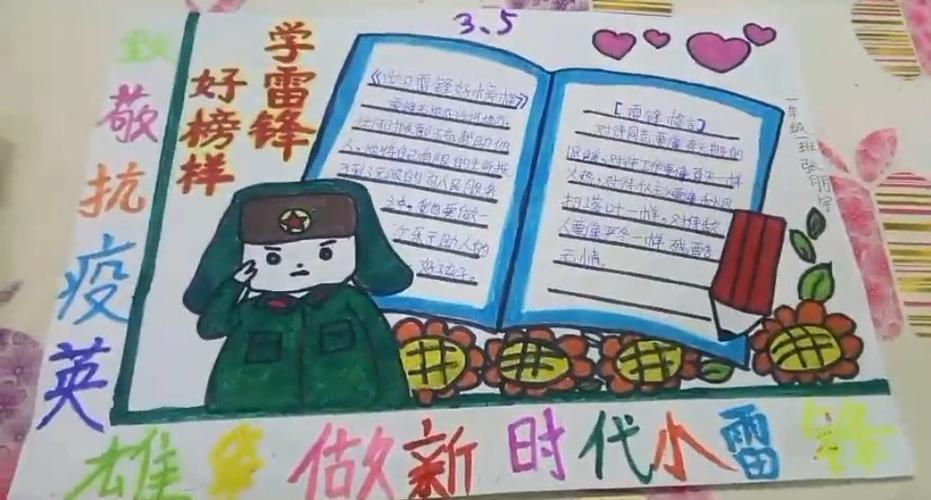 3.5
学雷锋
好榜样
致敬抗疫英
雄争做新时代小雷锋
《学习雷锋好榜样》
雷锋无论在任何地方,
任何时候都乐意帮助他
人,他将自己有限的生命投
到了无限的为人民服务
之中。我也要做一
个乐于助人的
好孩子。
【雷锋格言】
对待同志要像春天般的
温暖,对待工作要像夏天一样
火热,对待个人主义要像秋风
扫落叶一样,对待敌
人要像严冬一样 残酷
无情。
一年级一班张